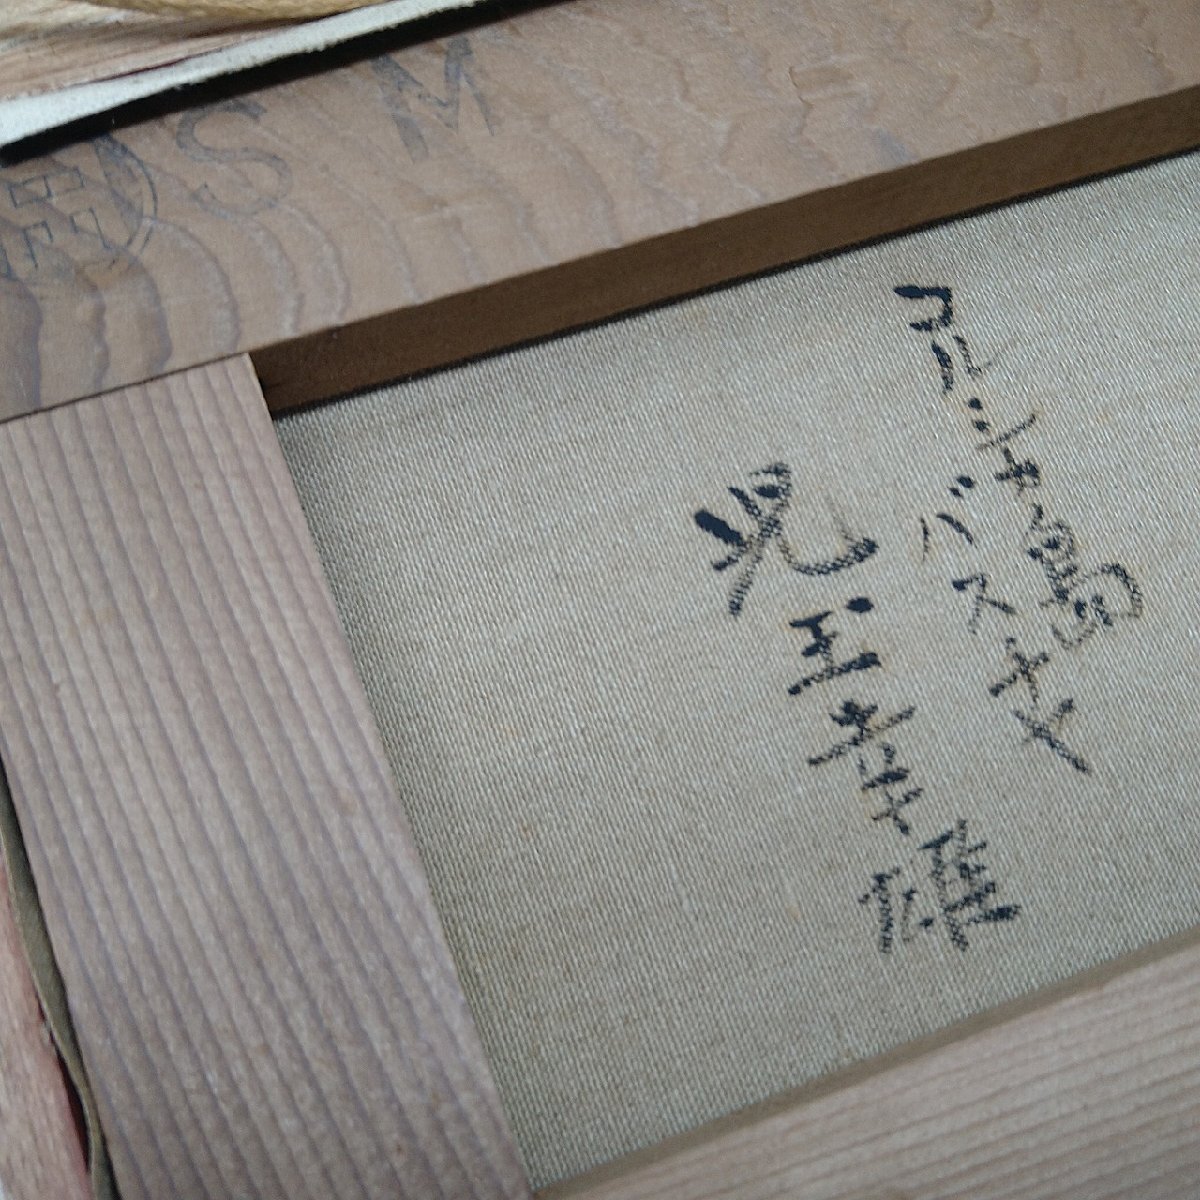 SM
コルシカ島
バスチヤ
児玉幸雄